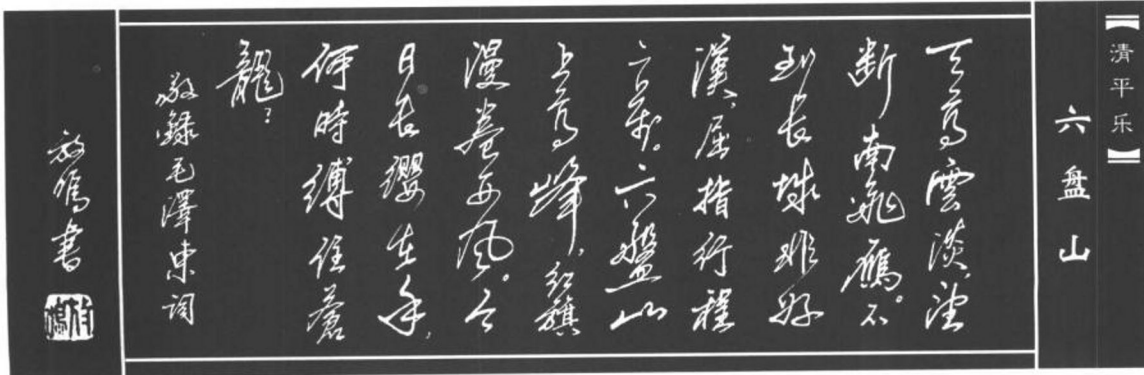 【清平乐】
六盘山
天高雲淡,望
断南飛鴈。不
到長城非好
漢,屈指行程
二萬。六盤山
上高峰,紅旗
漫卷西風。今
日長纓在手,
何時縛住蒼
龍?
敬錄毛澤東詞
書